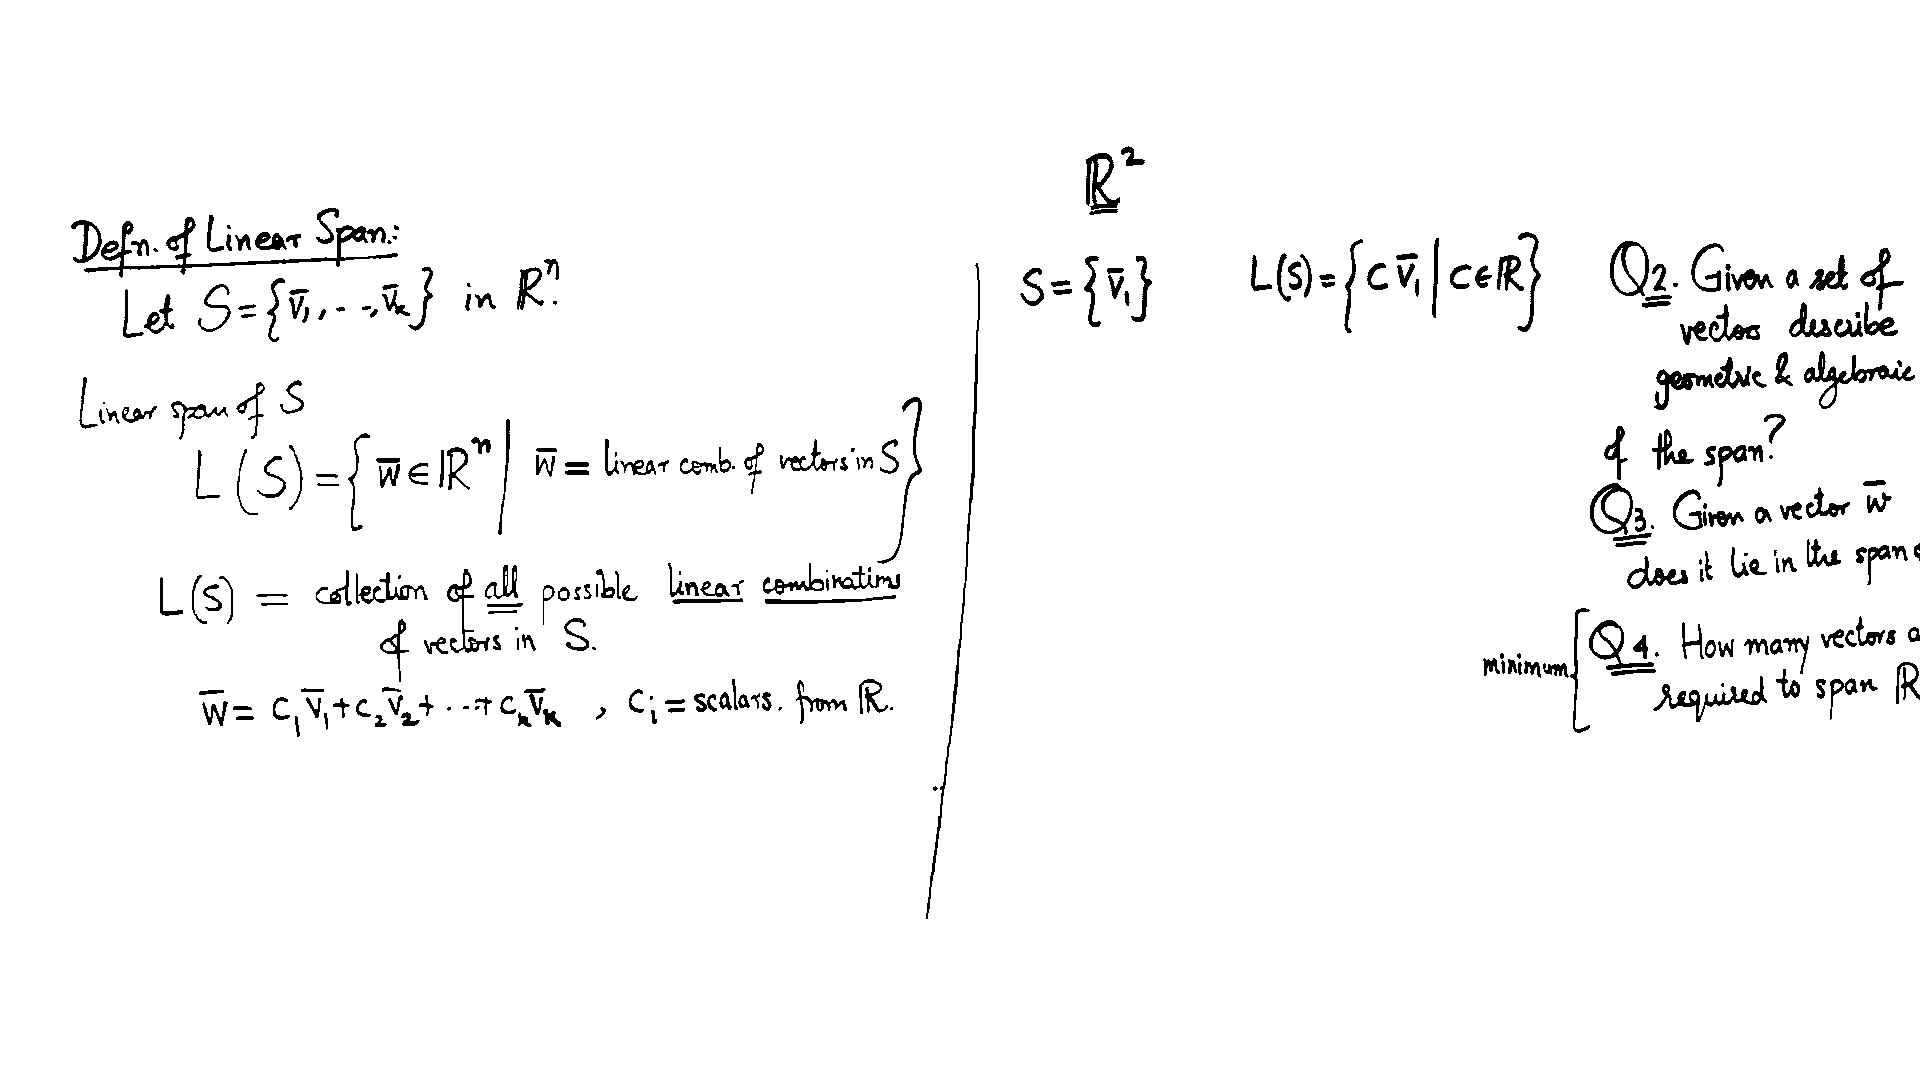 Defn. of Linear Span:
Let S = {v̄₁, . - -, v̄ₖ} in ℝⁿ.
Linear span of S
L(S) = { w̄ ∈ ℝⁿ | w̄ = linear comb. of vectors in S }
L(S) = collection of all possible linear combinations
of vectors in S.
w̄ = c₁v̄₁ + c₂v̄₂ + . . . + cₖv̄ₖ , cᵢ = scalars. from ℝ.
ℝ²
S = {v̄₁} L(S) = { c v̄₁ | c ∈ ℝ }
Q2. Given a set of
vectors describe
geometric & algebraic
of the span?
Q3. Given a vector w̄
does it lie in the span
minimum [ Q4. How many vectors a
required to span ℝ